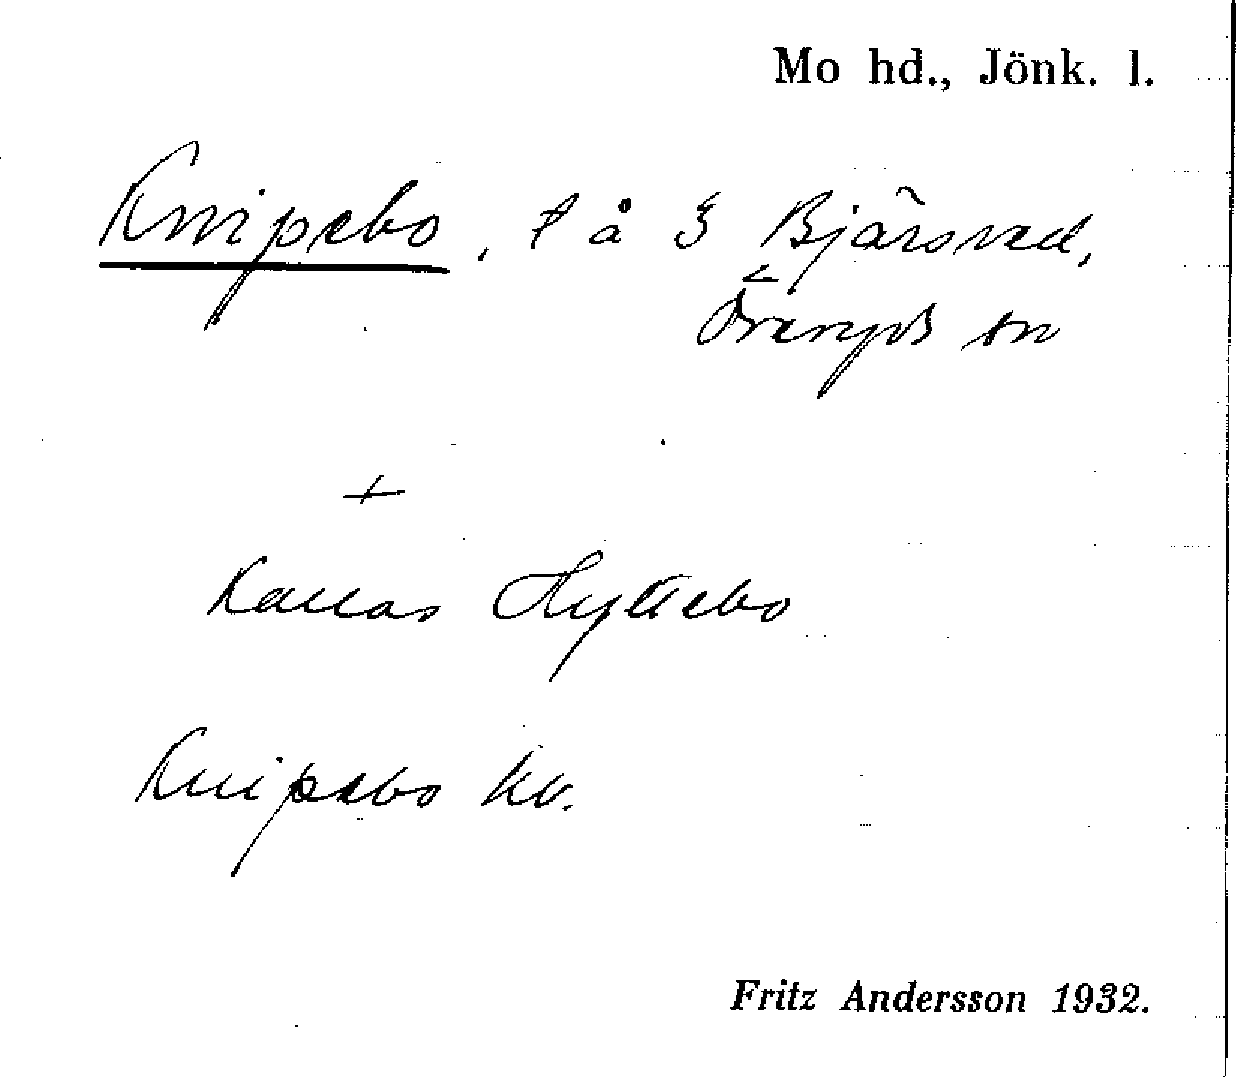 Mo hd., Jönk. l.
Knipebo, t å 3 Bjärsved,
Öreryds sn
+
Kallas Hyttebo
Knipebo kv.
Fritz Andersson 1932.